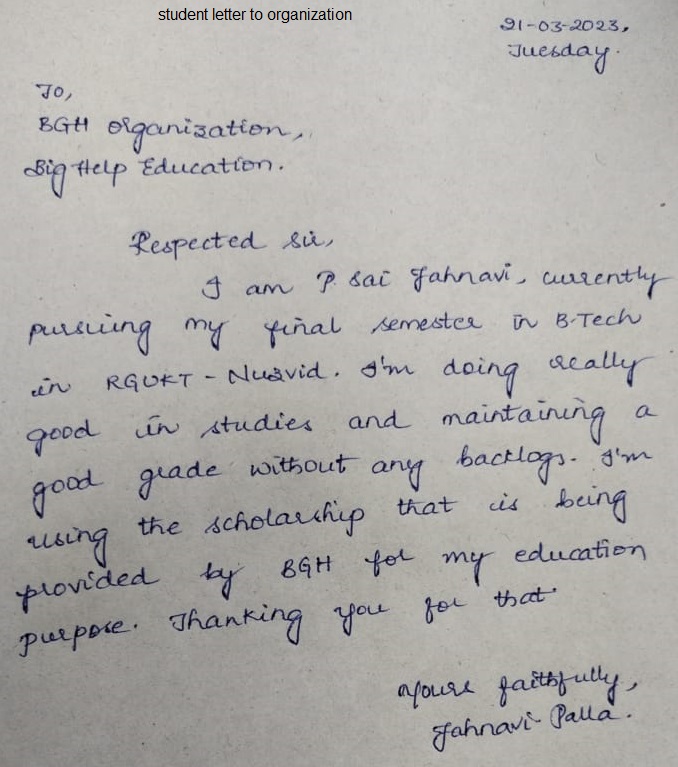 student letter to organization
21-03-2023,
Tuesday.
To,
BGH organization,
Big Help Education.
Respected Sir,
I am P. Sai Jahnavi, currently
pursuing my final semester in B-Tech
in RGUKT - Nuzvid. I'm doing really
good in studies and maintaining a
good grade without any backlogs. I'm
using the scholarship that is being
provided by BGH for my education
purpose. Thanking you for that
Yours faithfully,
Jahnavi Palla.